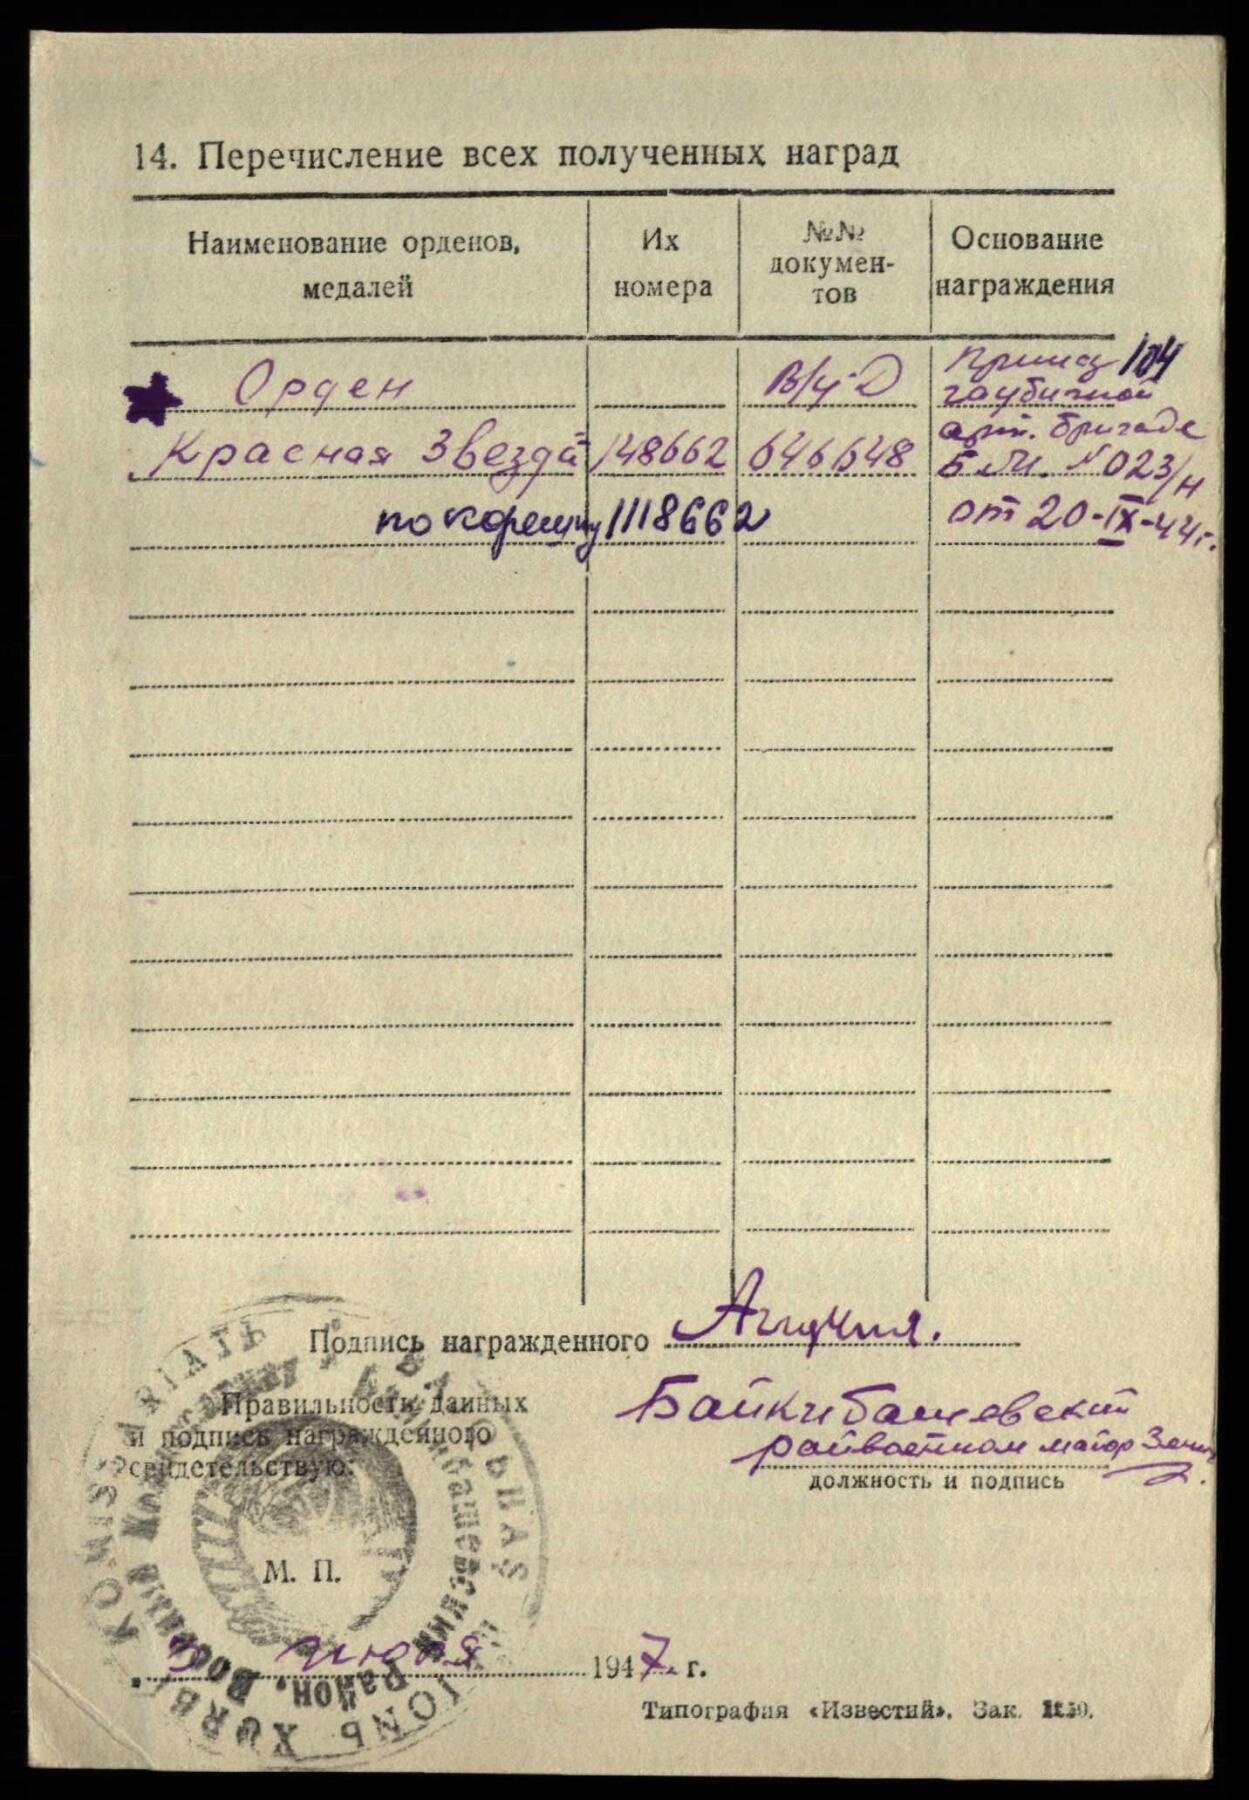 14. Перечисление всех полученных наград
Наименование орденов,
медалей
Их
номера
№№
докумен-
тов
Основание
награждения
Орден
в/у-D
Приказ 104
гаубичной
Красная Звезда 148662 646648
арт. бригаде
Б.М. N 023/н
по корешку 1118662
от 20-IX-44г.
Подпись награжденного
Правильность данных
и подпись награжденного
свидетельствую:
Байкибашевский
райвоенком майор
должность и подпись
М. П.
июля 1947 г.
Типография «Известий». Зак.